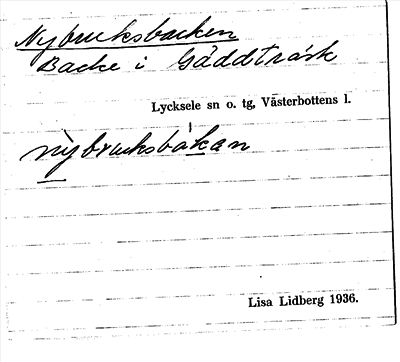 Nybruksbacken
Backe i Gäddträsk
Lycksele sn o. tg, Västerbottens l.
nybruksbakan
Lisa Lidberg 1936.